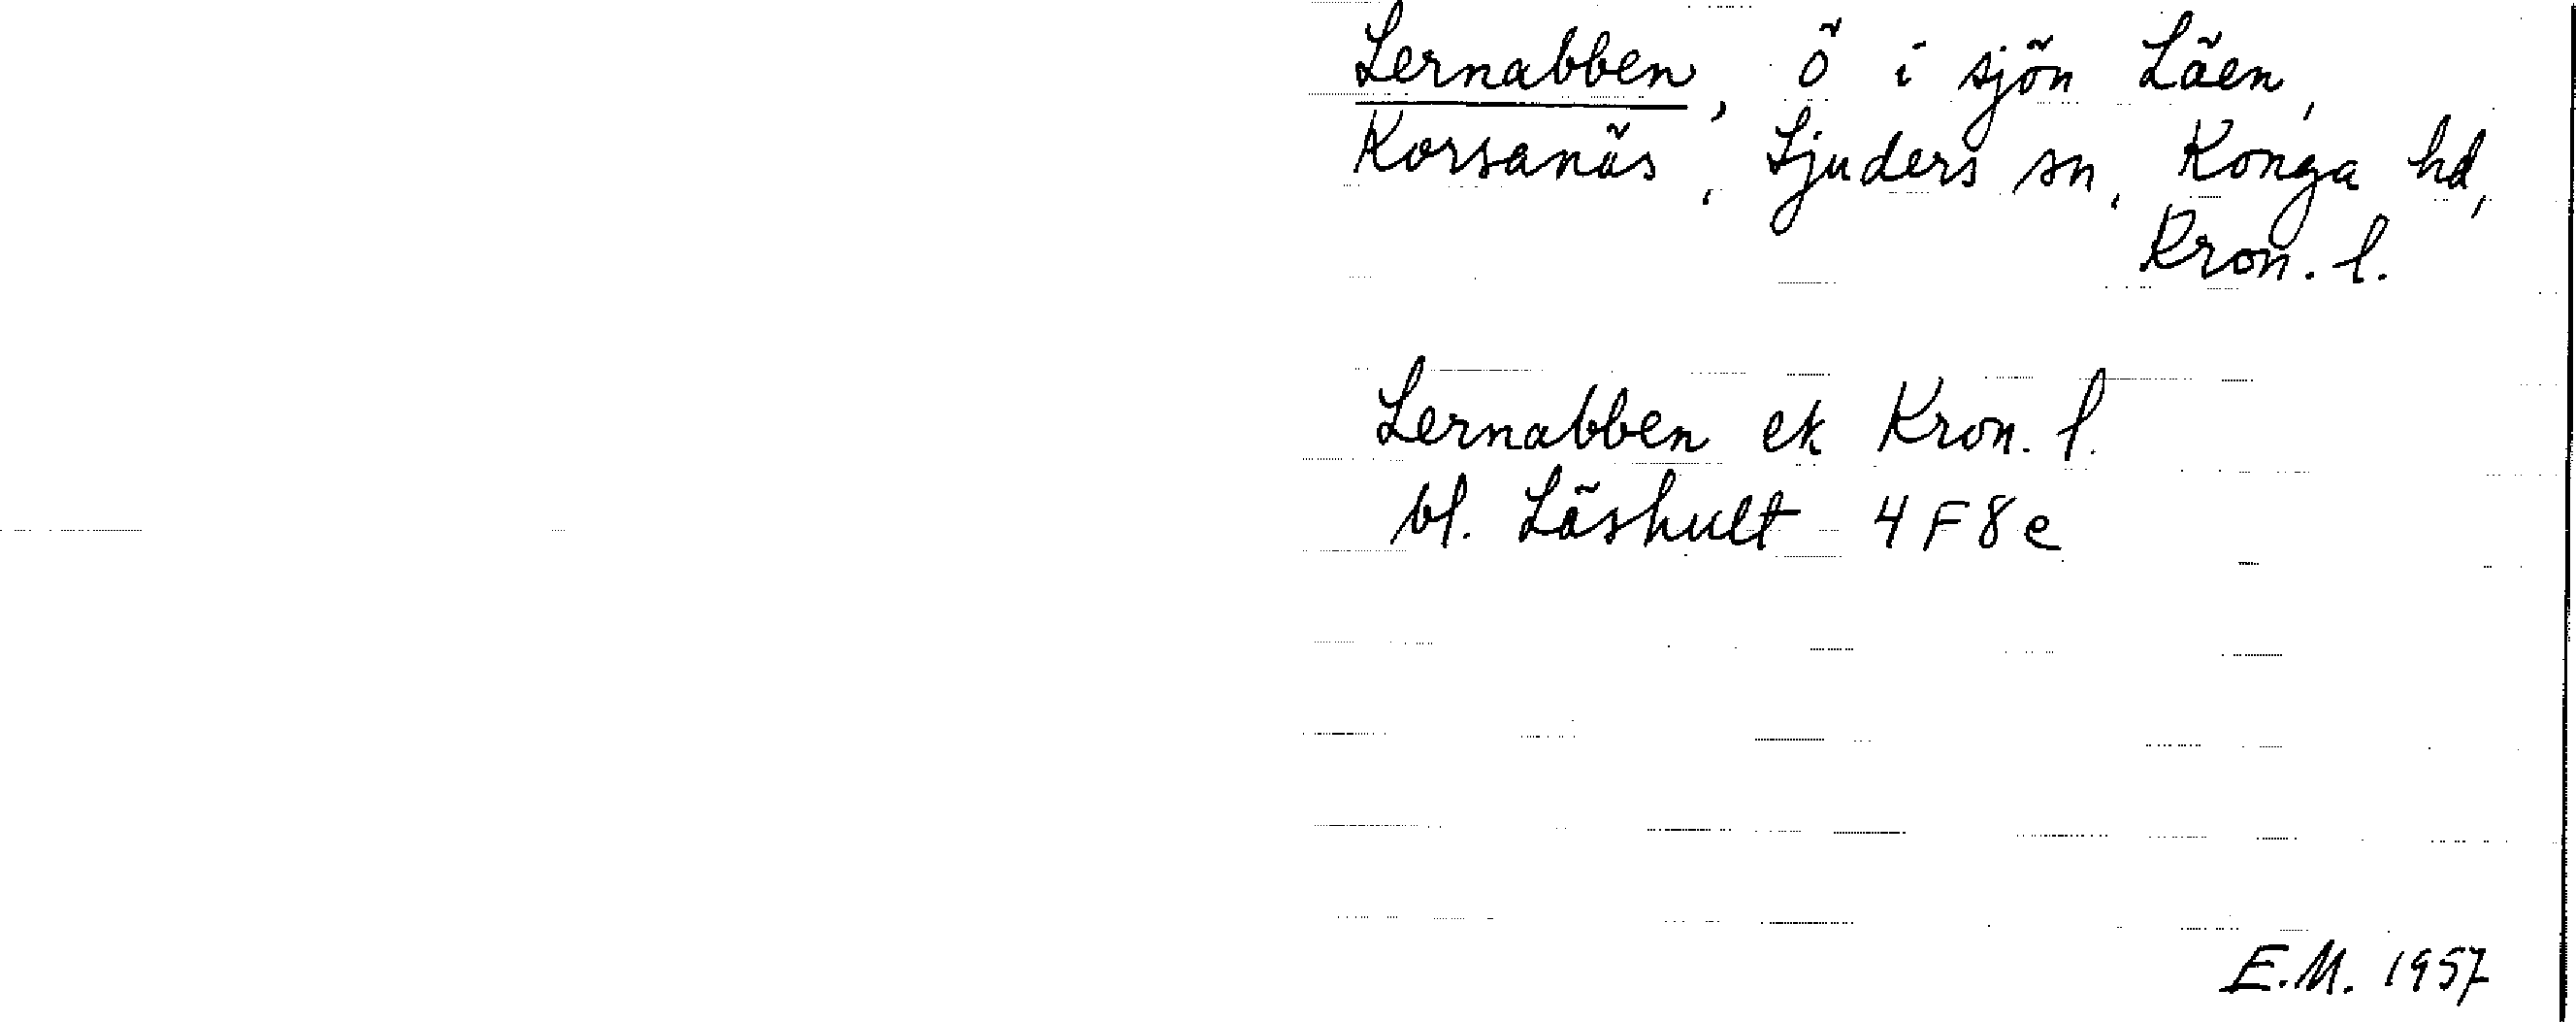 Lernabben, ö i sjön Läen,
Korsanäs, Ljuders sn, Konga hd,
Kron. l.
Lernabben ek Kron. l.
bl. Läshult 4F8e
E.M. 1957